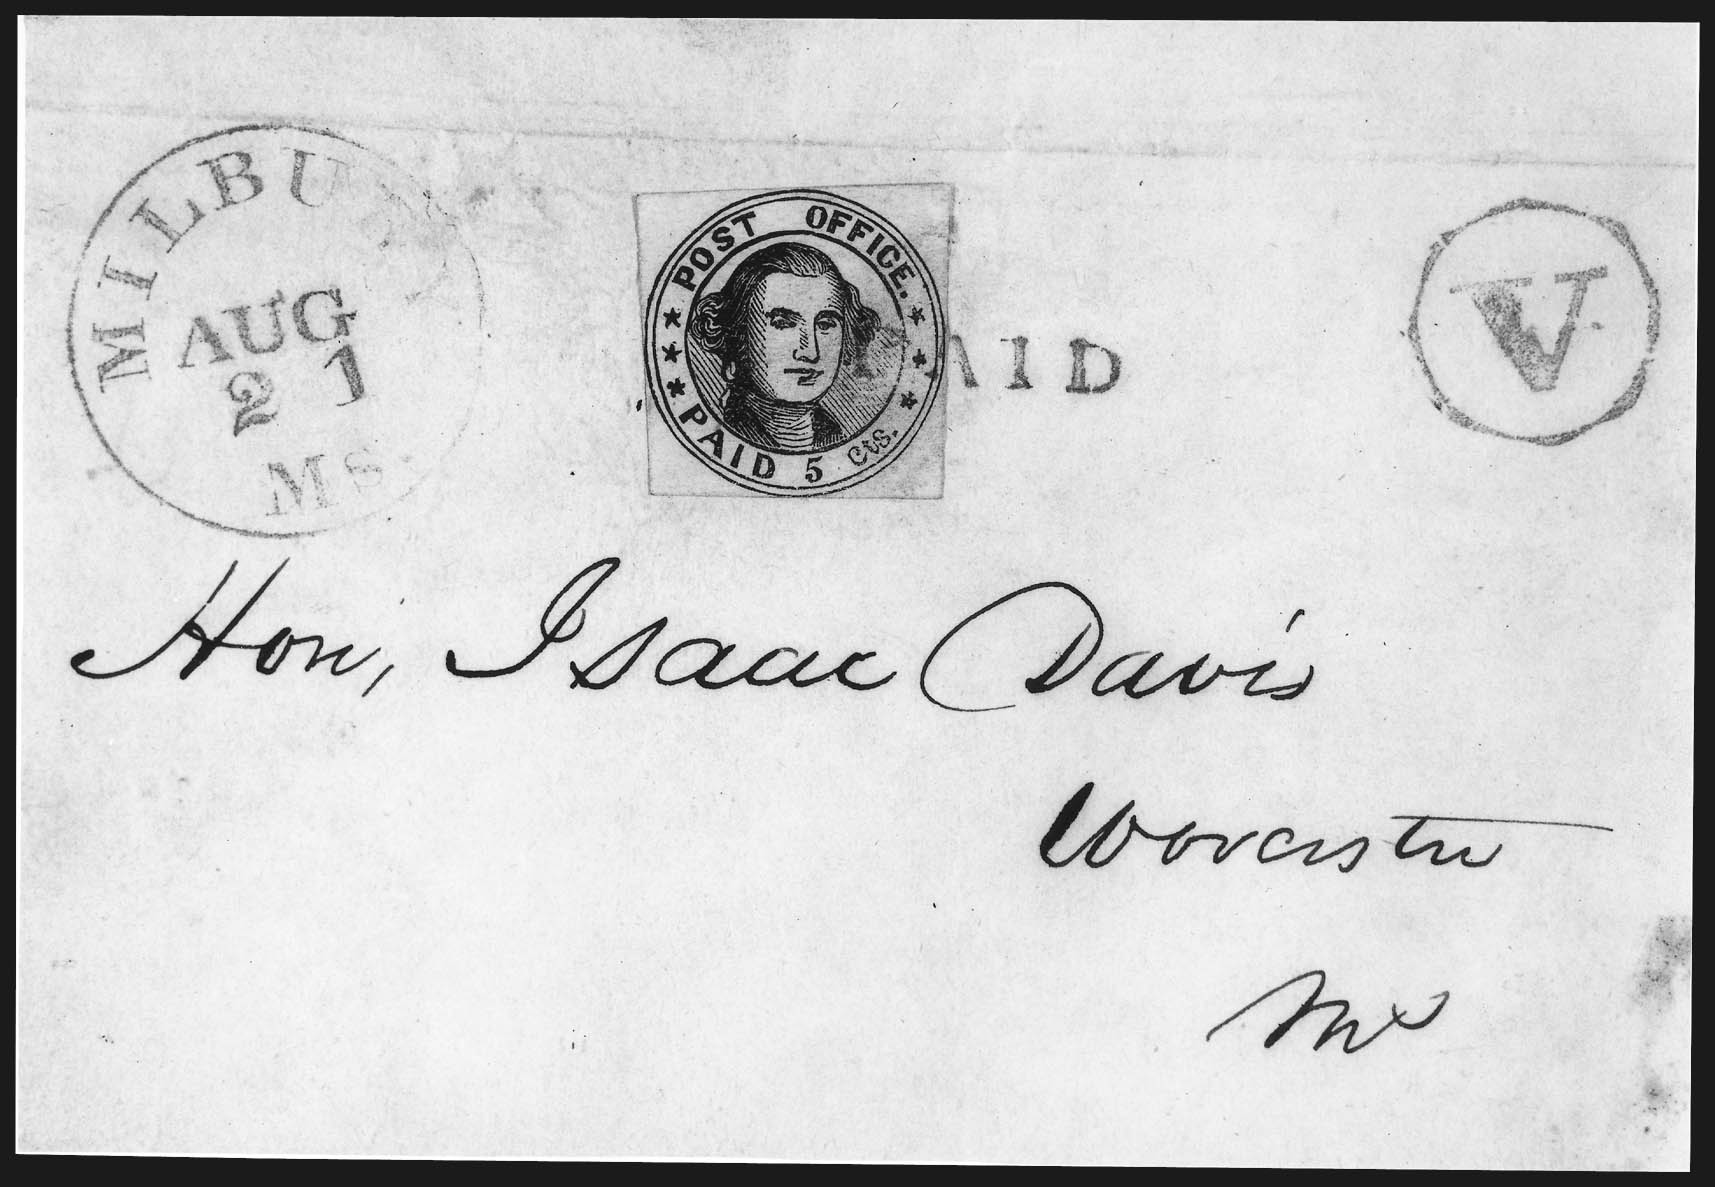 MILBURY
AUG
21
Ms.
POST OFFICE.
PAID 5 cts.
PAID
V
Hon, Isaac Davis
Worcester
Ms